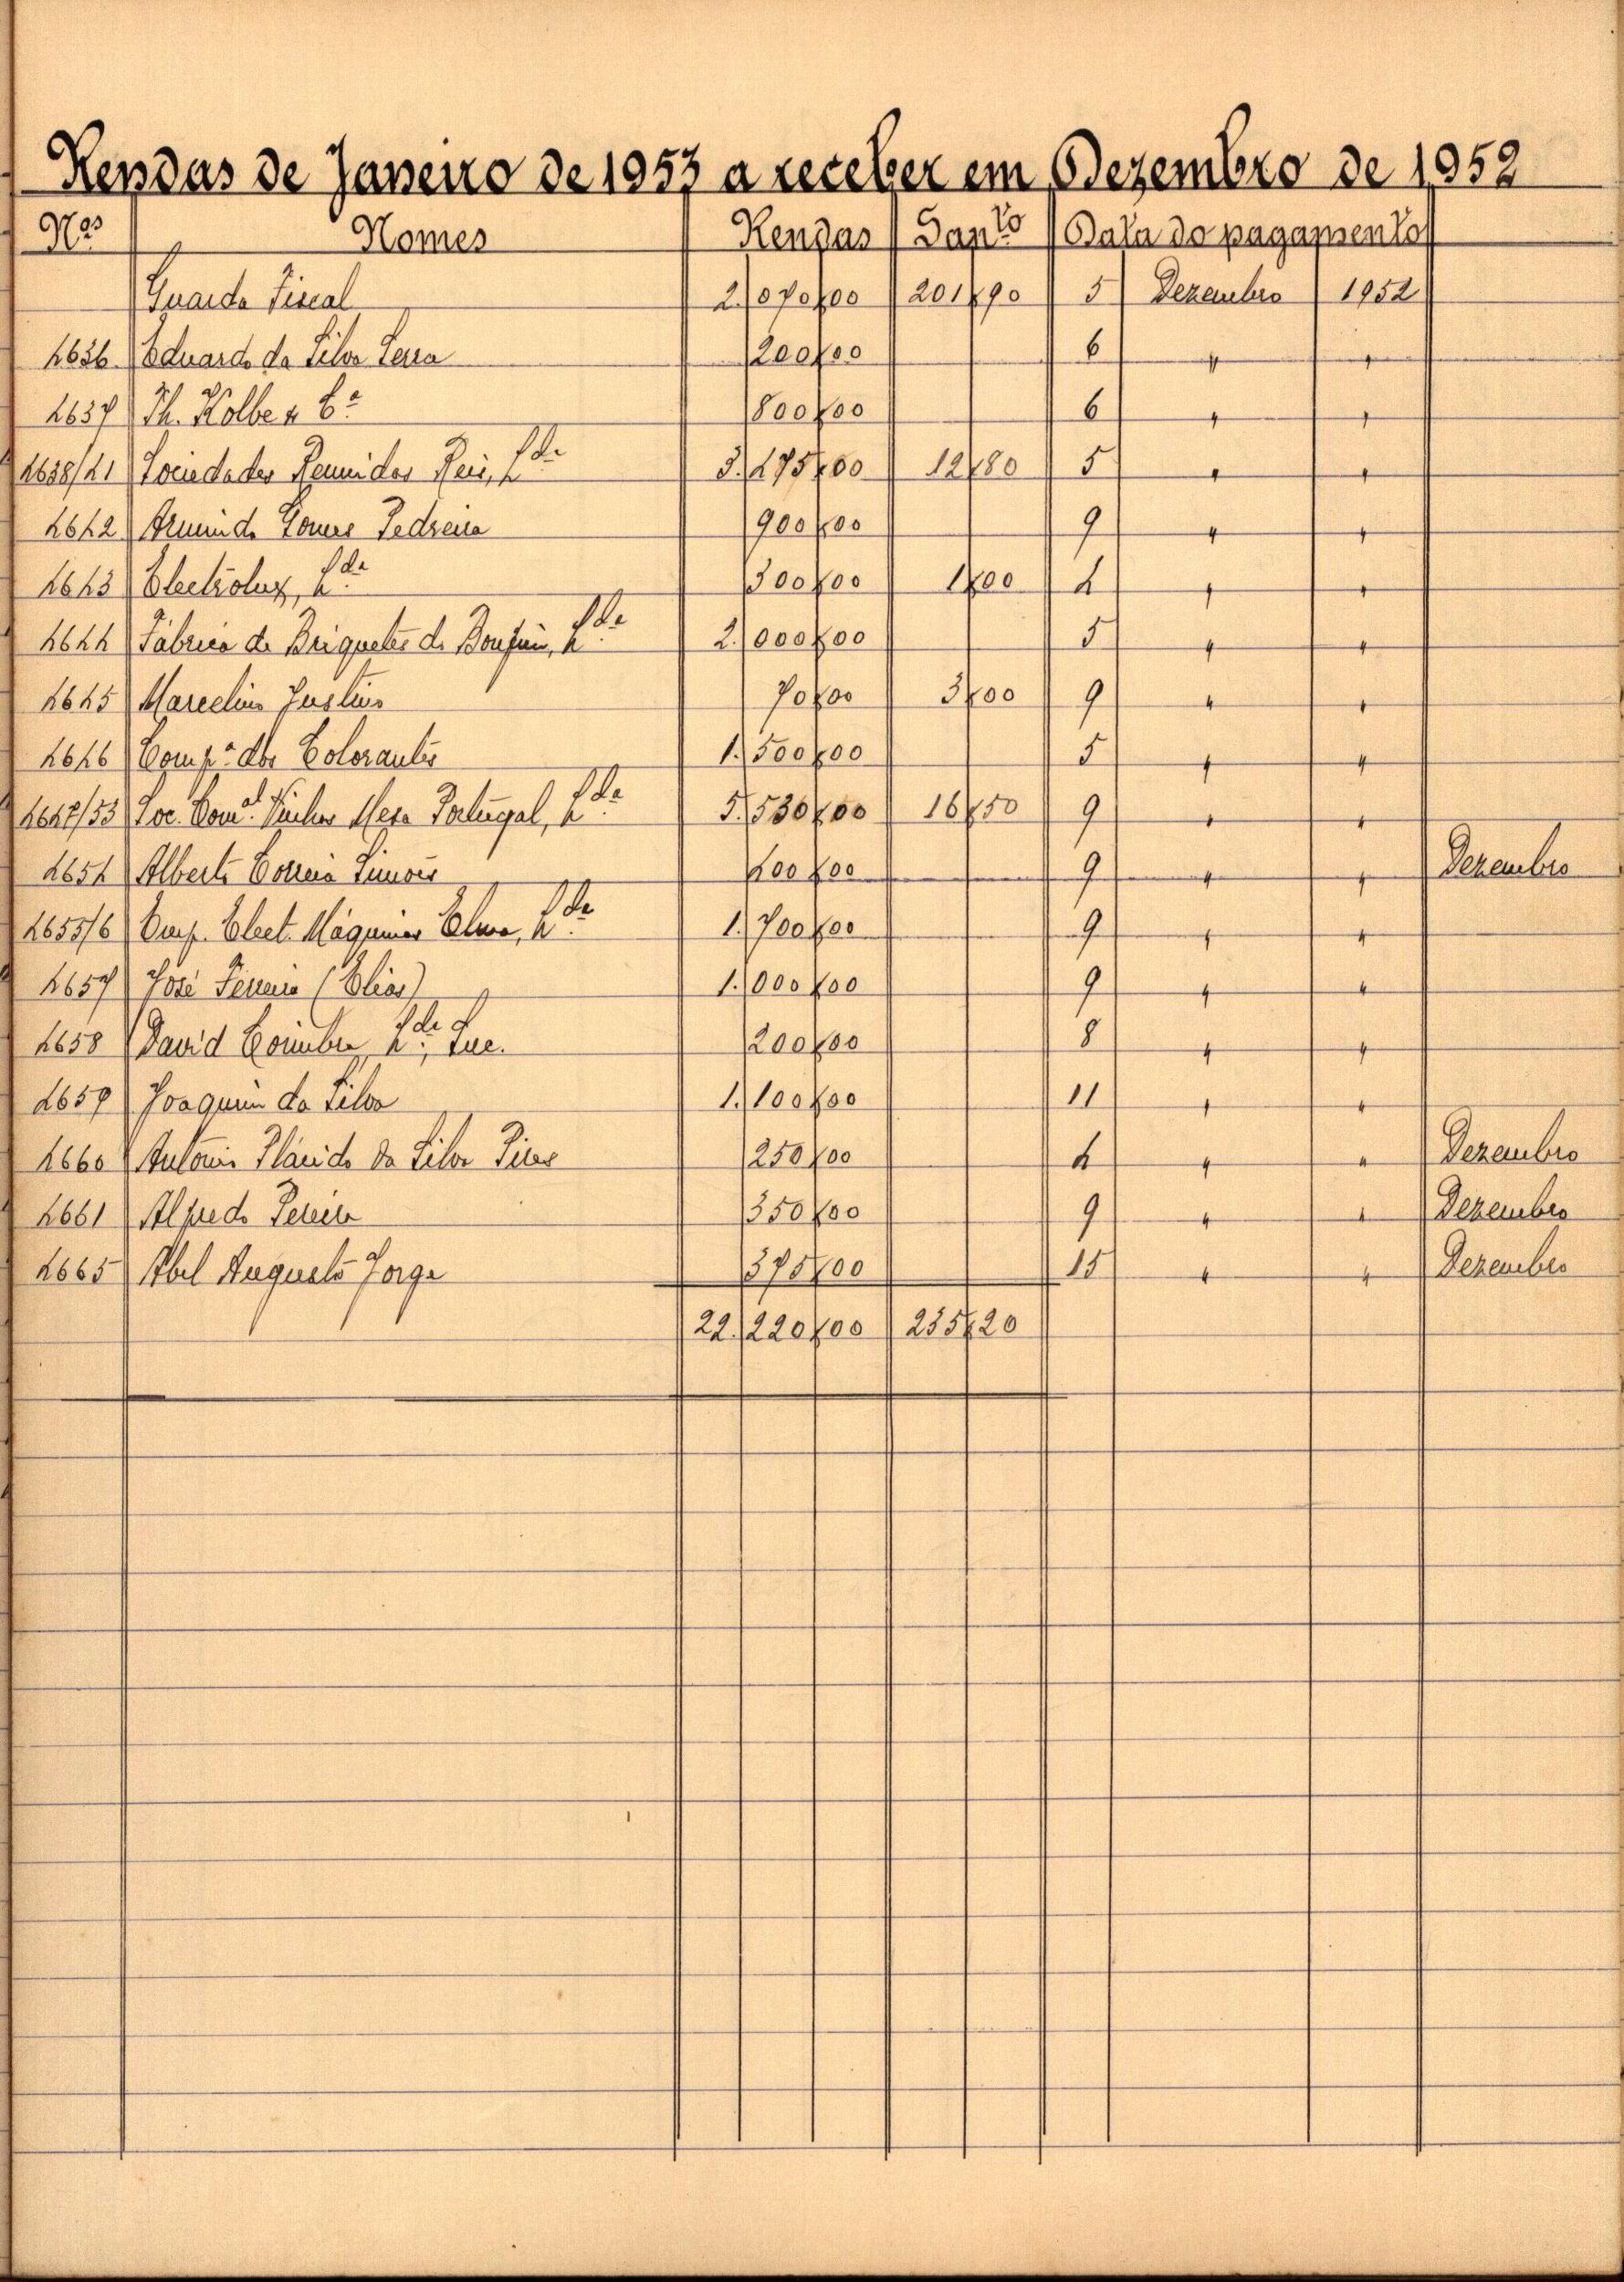 Rendas de Janeiro de 1953 a receber em Dezembro de 1952
Nos Nomes Rendas Santo Data do pagamento
Guarda Fiscal 2.070$00 201$90 5 Dezembro 1952
4636 Eduardo da Silva Serra 200$00 6 " "
4637 Th. Kolbe & Cª 800$00 6 " "
4638/41 Sociedades Reunidas Reis, Lda 3.475$00 12$80 5 " "
4642 Armindo Gomes Pedreira 900$00 9 " "
4643 Electrolux, Lda 300$00 1$00 4 " "
4644 Fábrica de Briquetes do Bonfim, Lda 2.000$00 5 " "
4645 Marcelino Justino 70$00 3$00 9 " "
4646 Compª dos Colorantes 1.500$00 5 " "
4647/53 Soc. Comal. Portugal, Lda 5.530$00 16$50 9 " "
4654 Alberto Correia Simões 400$00 9 " " Dezembro
4655/6 Emp. Elect. Máquinas Elma, Lda 1.700$00 9 " "
4657 José Ferreira (Elias) 1.000$00 9 " "
4658 David Coimbra, Lda, Suc. 200$00 8 " "
4659 Joaquim da Silva 1.100$00 11 " "
4660 António Plácido da Silva Pires 250$00 4 " " Dezembro
4661 Alfredo Pereira 350$00 9 " " Dezembro
4665 Abel Augusto Jorge 375$00 15 " " Dezembro
22.220$00 235$20